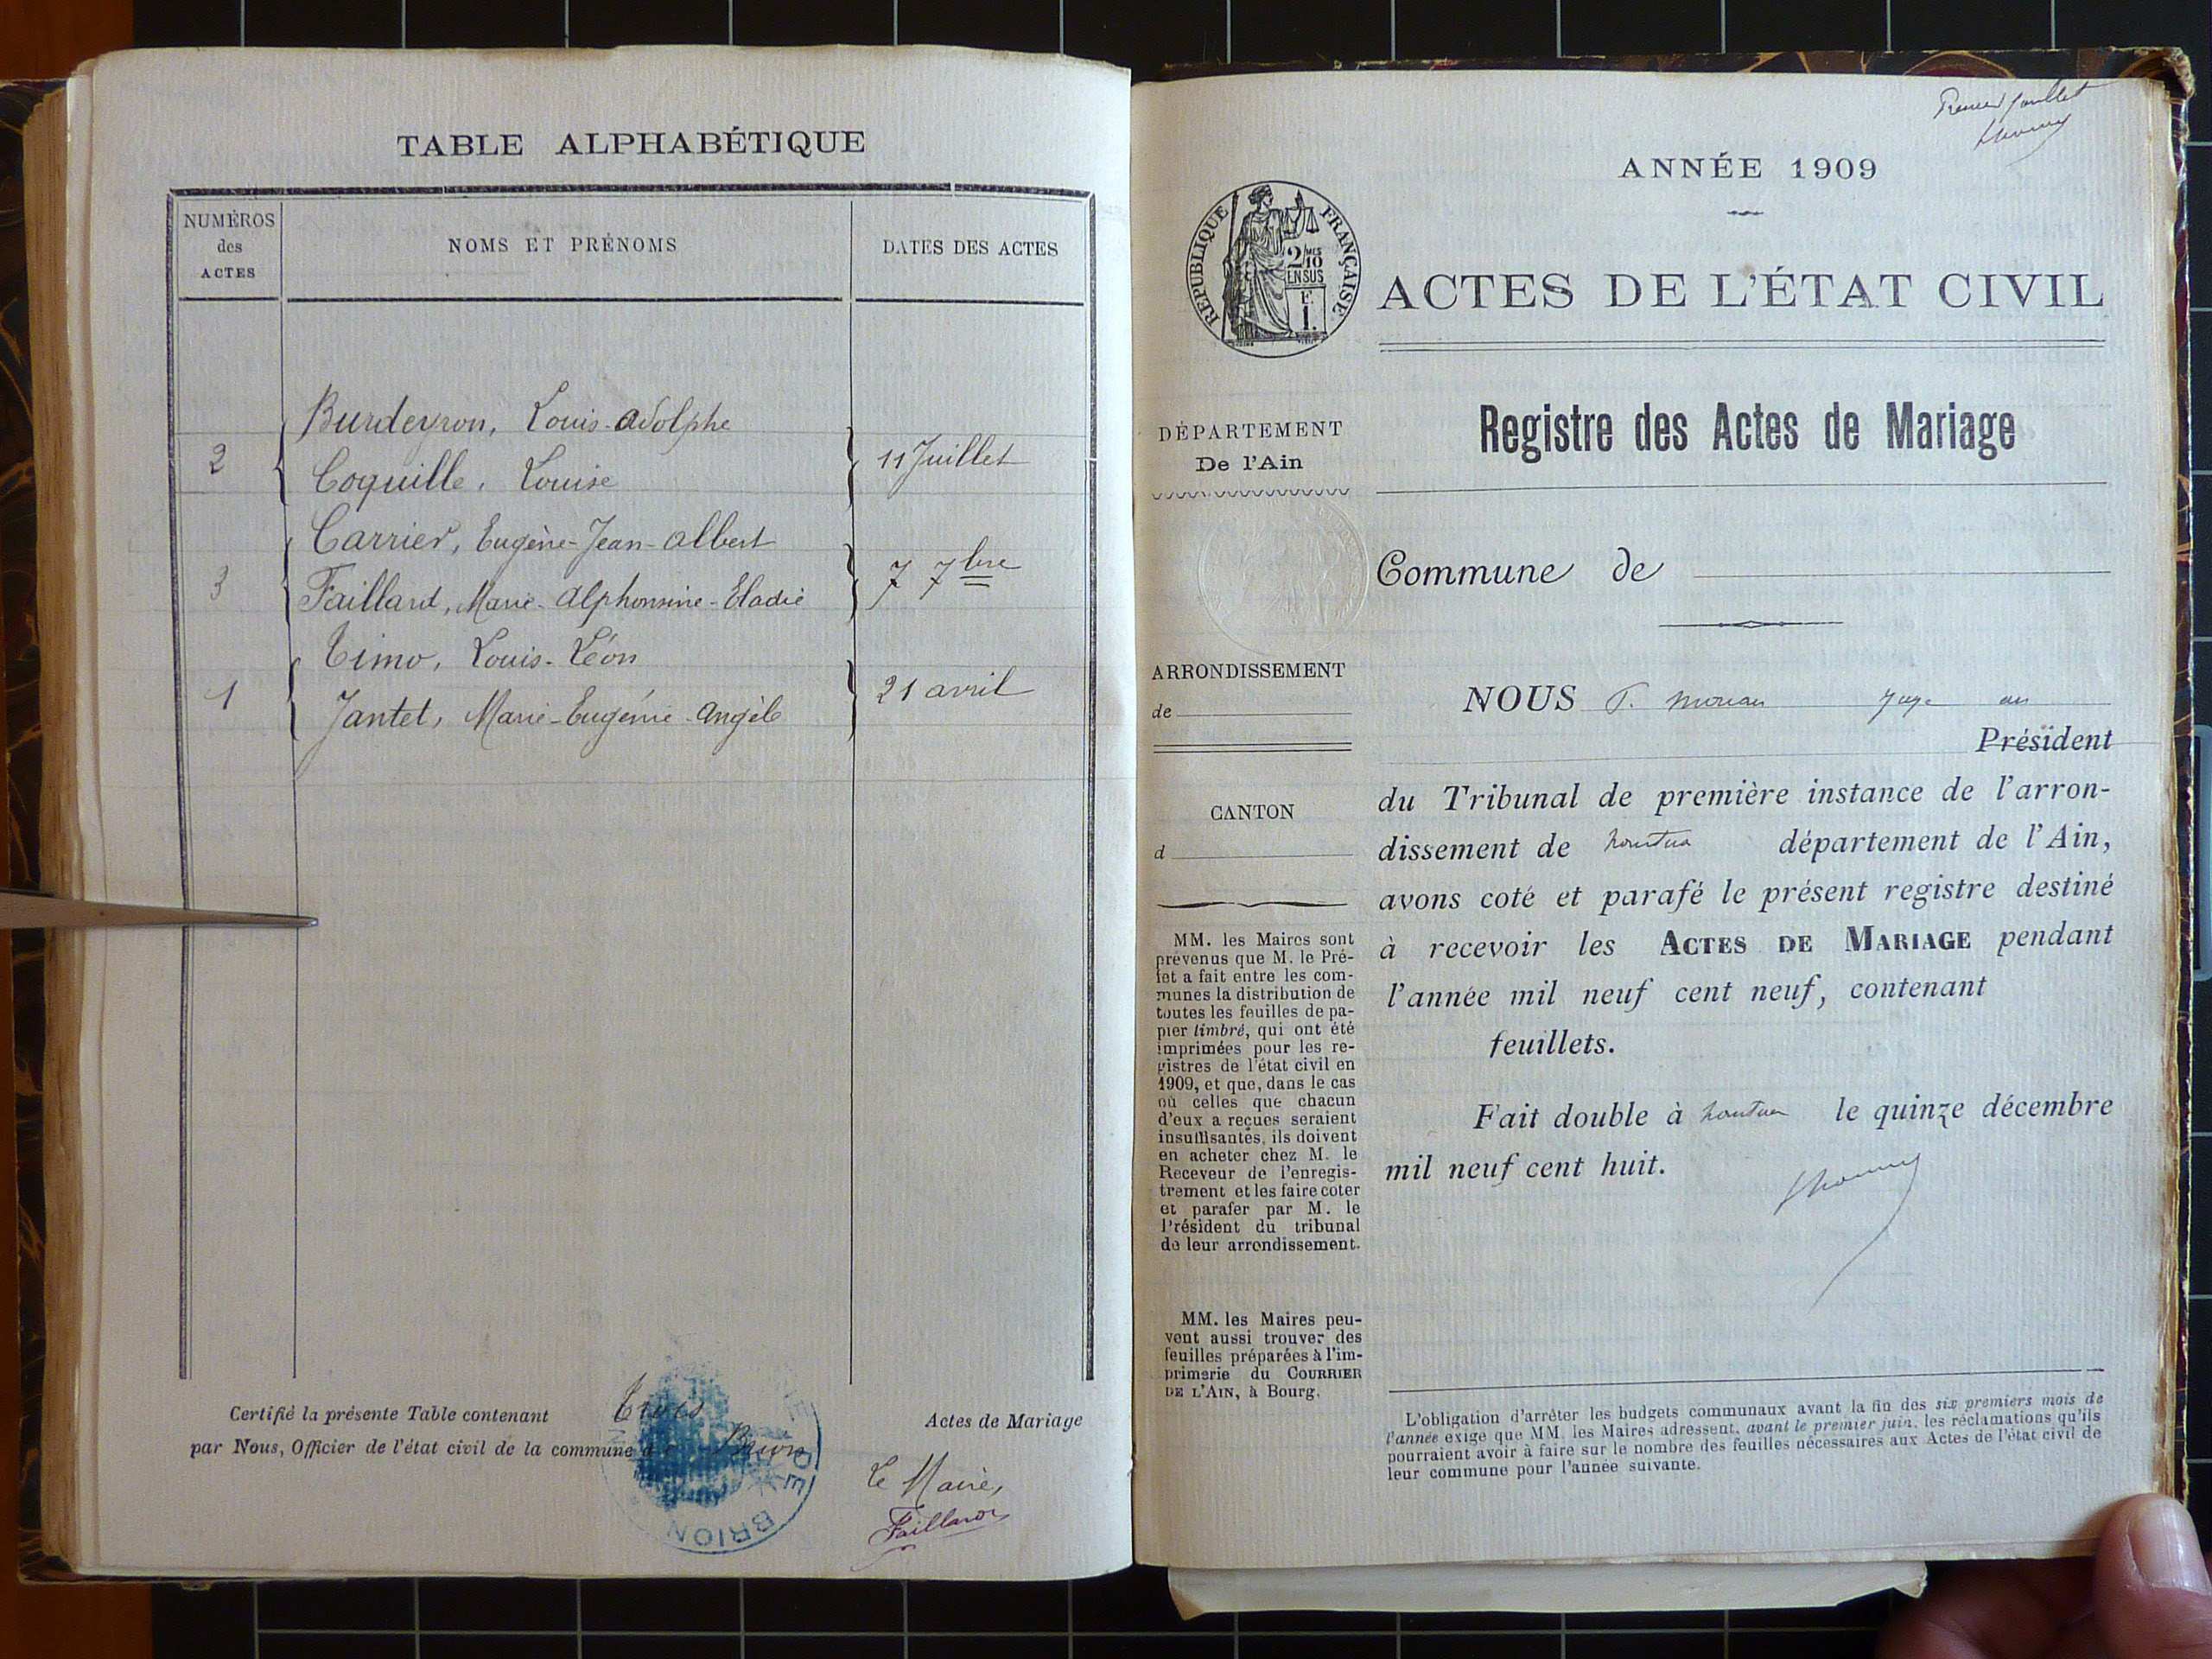 TABLE ALPHABÉTIQUE
NUMÉROS
des
ACTES
NOMS ET PRÉNOMS
DATES DES ACTES
Burdeyron, Louis-Adolphe
2
11 Juillet
Coquille, Louise
Carrier, Eugène-Jean-Albert
3
7 7bre
Faillard, Marie-Alphonsine-Eladie
Timo, Louis-Léon
1
21 avril
Jantet, Marie-Eugénie-Angèle
Certifié la présente Table contenant Trois Actes de Mariage
par Nous, Officier de l'état civil de la commune de Brion
DE BRION
Le Maire,
Faillard
Premier feuillet
ANNÉE 1909
RÉPUBLIQUE FRANÇAISE
2/10 MES
EN SUS
F.
1.
ACTES DE L'ÉTAT CIVIL
Registre des Actes de Mariage
DÉPARTEMENT
De l'Ain
Commune de
ARRONDISSEMENT
de
CANTON
d
MM. les Maires sont
prévenus que M. le Pré-
fet a fait entre les com-
munes la distribution de
toutes les feuilles de pa-
pier timbré, qui ont été
imprimées pour les re-
gistres de l'état civil en
1909, et que, dans le cas
où celles que chacun
d'eux a reçues seraient
insuffisantes, ils doivent
en acheter chez M. le
Receveur de l'enregis-
trement et les faire coter
et parafer par M. le
Président du tribunal
de leur arrondissement.
MM. les Maires peu-
vent aussi trouver des
feuilles préparées à l'im-
primerie du COURRIER
DE L'AIN, à Bourg.
NOUS Juge au
Président
du Tribunal de première instance de l'arron-
dissement de nantua département de l'Ain,
avons coté et parafé le présent registre destiné
à recevoir les ACTES DE MARIAGE pendant
l'année mil neuf cent neuf, contenant
feuillets.
Fait double à nantua le quinze décembre
mil neuf cent huit.
L'obligation d'arrêter les budgets communaux avant la fin des six premiers mois de
l'année exige que MM. les Maires adressent, avant le premier juin, les réclamations qu'ils
pourraient avoir à faire sur le nombre des feuilles nécessaires aux Actes de l'état civil de
leur commune pour l'année suivante.